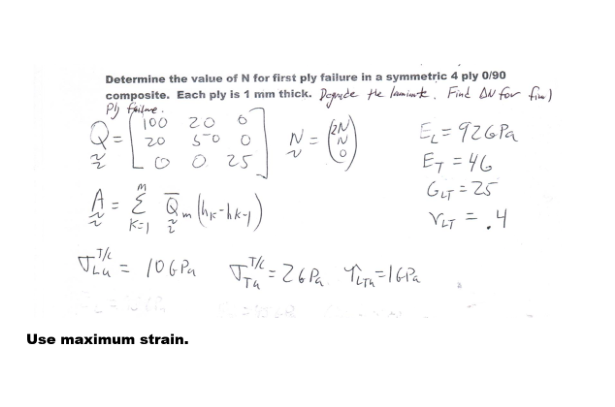 Determine the value of N for first ply failure in a symmetric 4 ply 0/90
composite. Each ply is 1 mm thick. Degrade the laminate. Find ΔN for final
Ply failure.
Q = [100 20 0
20 50 0
0 0 25]
N = (2N
N
0)
E_L = 92GPa
E_T = 46
G_LT = 25
ν_LT = .4
A = Σ_{K=1}^{m} Q̄_m (h_K - h_{K-1})
σ_Lu^{T/C} = 10GPa σ_Tu^{T/C} = 2GPa τ_LTu = 1GPa
Use maximum strain.